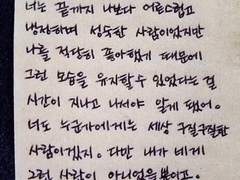 너는 끝까지 나보다 어른스럽고
냉정하며 성숙한 사람이었지만
나를 적당히 좋아했기 때문에
그런 모습을 유지할 수 있었다는 걸
시간이 지나고 나서야 알게 됐어.
너도 누군가에게는 세상 구질구질한
사람이겠지. 다만 내가 네게
그런 사람이 아니었을 뿐이고.